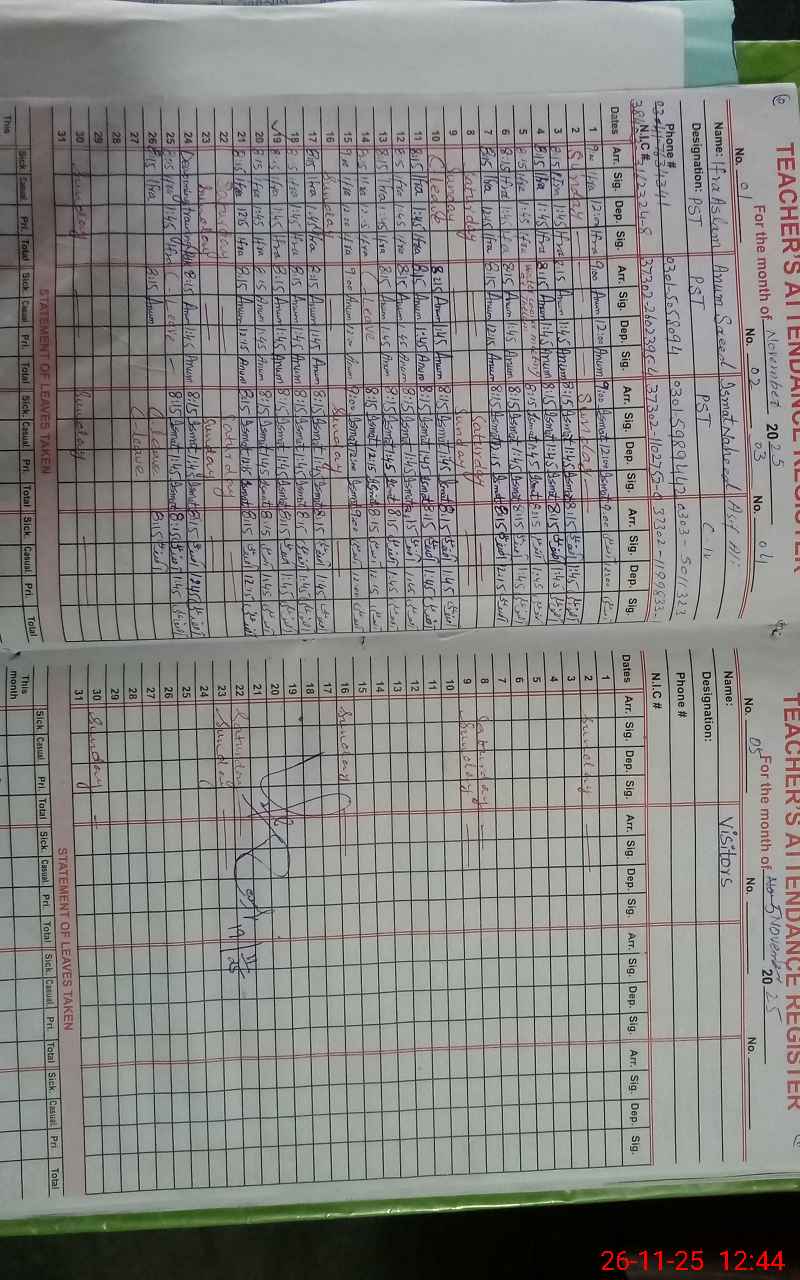 TEACHER'S ATTENDANCE REGISTER
For the month of November 2025
No. 01 No. 02 No. 03 No. 04
Name: Ifra Aslam Anum Saeed Ismat Naheed Asif Ali
Designation: PST PST PST C-IV
Phone #
N.I.C #
Dates Arr. Sig. Dep. Sig. Arr. Sig. Dep. Sig. Arr. Sig. Dep. Sig. Arr. Sig. Dep. Sig.
1 9:00 Ifra 12:00 Ifra 9:00 Anum 12:00 Anum 9:00 Ismat 12:00 Ismat 9:00 12:00
2 Sunday Sunday
3 8:15 Ifra 1:45 Ifra 8:15 Anum 1:45 Anum 8:15 Ismat 1:45 Ismat 8:15 1:45
4 8:15 Ifra 1:45 Ifra 8:15 Anum 1:45 Anum 8:15 Ismat 1:45 Ismat 8:15 1:45
5 8:15 Ifra 1:45 Ifra 8:15 Ismat 1:45 Ismat 8:15 1:45
6 8:15 Ifra 1:45 Ifra 8:15 Anum 1:45 Anum 8:15 Ismat 1:45 Ismat 8:15 1:45
7 8:15 Ifra 12:15 Ifra 8:15 Anum 12:15 Anum 8:15 Ismat 12:15 Ismat 8:15 12:15
8 Saturday Saturday
9 Sunday Sunday
10 (Leave 8:15 Anum 1:45 Anum 8:15 Ismat 1:45 Ismat 8:15 1:45
11 8:15 Ifra 1:45 Ifra 8:15 Anum 1:45 Anum 8:15 Ismat 1:45 Ismat 8:15 1:45
12 8:15 Ifra 1:45 Ifra 8:15 Anum 1:45 Anum 8:15 Ismat 1:45 Ismat 8:15 1:45
13 8:15 Ifra 1:45 Ifra 8:15 Anum 1:45 Anum 8:15 Ismat 1:45 Ismat 8:15 1:45
14 8:15 Ifra 12:15 Ifra (Leave 8:15 Ismat 12:15 Ismat 8:15 12:15
15 9:00 Ifra 12:00 Ifra 9:00 Anum 12:00 Anum 9:00 Ismat 12:00 Ismat 9:00 12:00
16 Sunday Sunday
17 8:15 Ifra 1:45 Ifra 8:15 Anum 1:45 Anum 8:15 Ismat 1:45 Ismat 8:15 1:45
18 8:15 Ifra 1:45 Ifra 8:15 Anum 1:45 Anum 8:15 Ismat 1:45 Ismat 8:15 1:45
19 8:15 Ifra 1:45 Ifra 8:15 Anum 1:45 Anum 8:15 Ismat 1:45 Ismat 8:15 1:45
20 8:15 Ifra 1:45 Ifra 8:15 Anum 1:45 Anum 8:15 Ismat 1:45 Ismat 8:15 1:45
21 8:15 Ifra 12:15 Ifra 8:15 Anum 12:15 Anum 8:15 Ismat 12:15 Ismat 8:15 12:15
22 Saturday Saturday
23 Sunday Sunday
24 8:15 Anum 1:45 Anum 8:15 Ismat 1:45 Ismat 8:15
25 8:15 Ifra 1:45 Ifra (Leave 8:15 Ismat 1:45 Ismat 8:15 1:45
26 8:15 Ifra 8:15 Anum (Leave 8:15
27 (Leave
28
29
30 Sunday Sunday
31
STATEMENT OF LEAVES TAKEN
Sick Casual Pri. Total Sick. Casual Pri. Total Sick. Casual Pri. Total Sick. Casual. Pri. Total
This
TEACHER'S ATTENDANCE REGISTER
For the month of November 2025
No. 05 No. No.
Name: Visitors
Designation:
Phone #
N.I.C #
Dates Arr. Sig. Dep. Sig. Arr. Sig. Dep. Sig. Arr. Sig. Dep. Sig. Arr. Sig. Dep. Sig.
1
2 Sunday
3
4
5
6
7
8 Saturday
9 Sunday
10
11
12
13
14
15
16 Sunday
17
18
19
20
21
22 Saturday
23 Sunday
24
25
26
27
28
29
30 Sunday
31
STATEMENT OF LEAVES TAKEN
Sick Casual Pri. Total Sick. Casual Pri. Total Sick. Casual Pri. Total Sick. Casual Pri Total
This month
26-11-25 12:44